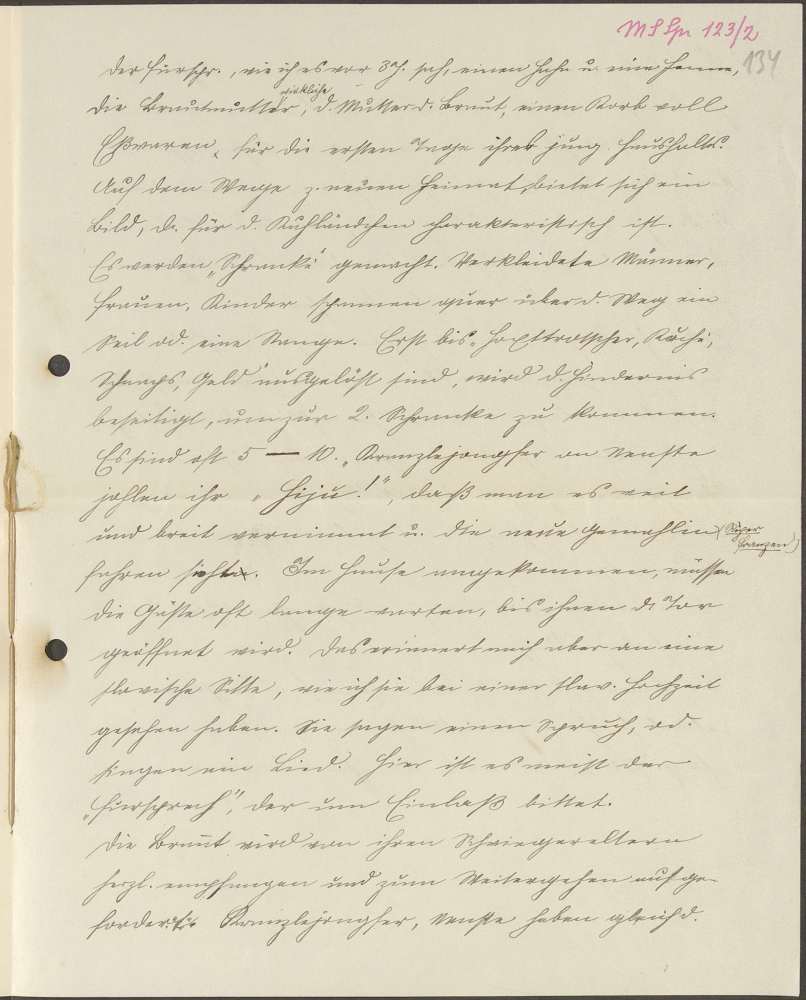 MS Spr 123/2
134
der Fürspr., wie ich es vor 3 J. sah, einen Hahn u. eine Henne,
die Brautmutter, wirkliche d. Mutter d. Braut, einen Korb voll
Eßwaren, für die ersten Tage ihres jung. Haushalts.
Auf dem Wege z. neuen Heimat, bietet sich ein
Bild, d. für d. Kuhländchen charakteristisch ist.
Es werden „Schranke“ gemacht. Verkleidete Männer,
Frauen, Kinder spannen quer über d. Weg ein
Seil od. eine Stange. Erst bis „ Kuche,
Schnaps, Geld“ ausgelöst sind, wird d. Hindernis
beseitigt, um zur 2. Schranke zu kommen.
Es sind oft 5 — 10. „Kranzlejongfer on
johlen ihr „Hiju!“, daß man es weit
und breit vernimmt u. die neue Gemahlin
fahren sieht. Im Hause angekommen, müssen
die Gäste oft lange warten, bis ihnen d. Tor
geöffnet wird. Das erinnert mich aber an eine
slavische Sitte, wie ich sie bei einer slav. Hochzeit
gesehen haben. Sie sagen einen Spruch, od.
singen ein Lied. Hier ist es meist der
„Fürsprech“, der um Einlaß bittet.
Die Braut wird von ihren Schwiegereltern
herzl. empfangen und zum Weitergehen aufge-
fordert. Kranzlejongfer, haben gleich d.